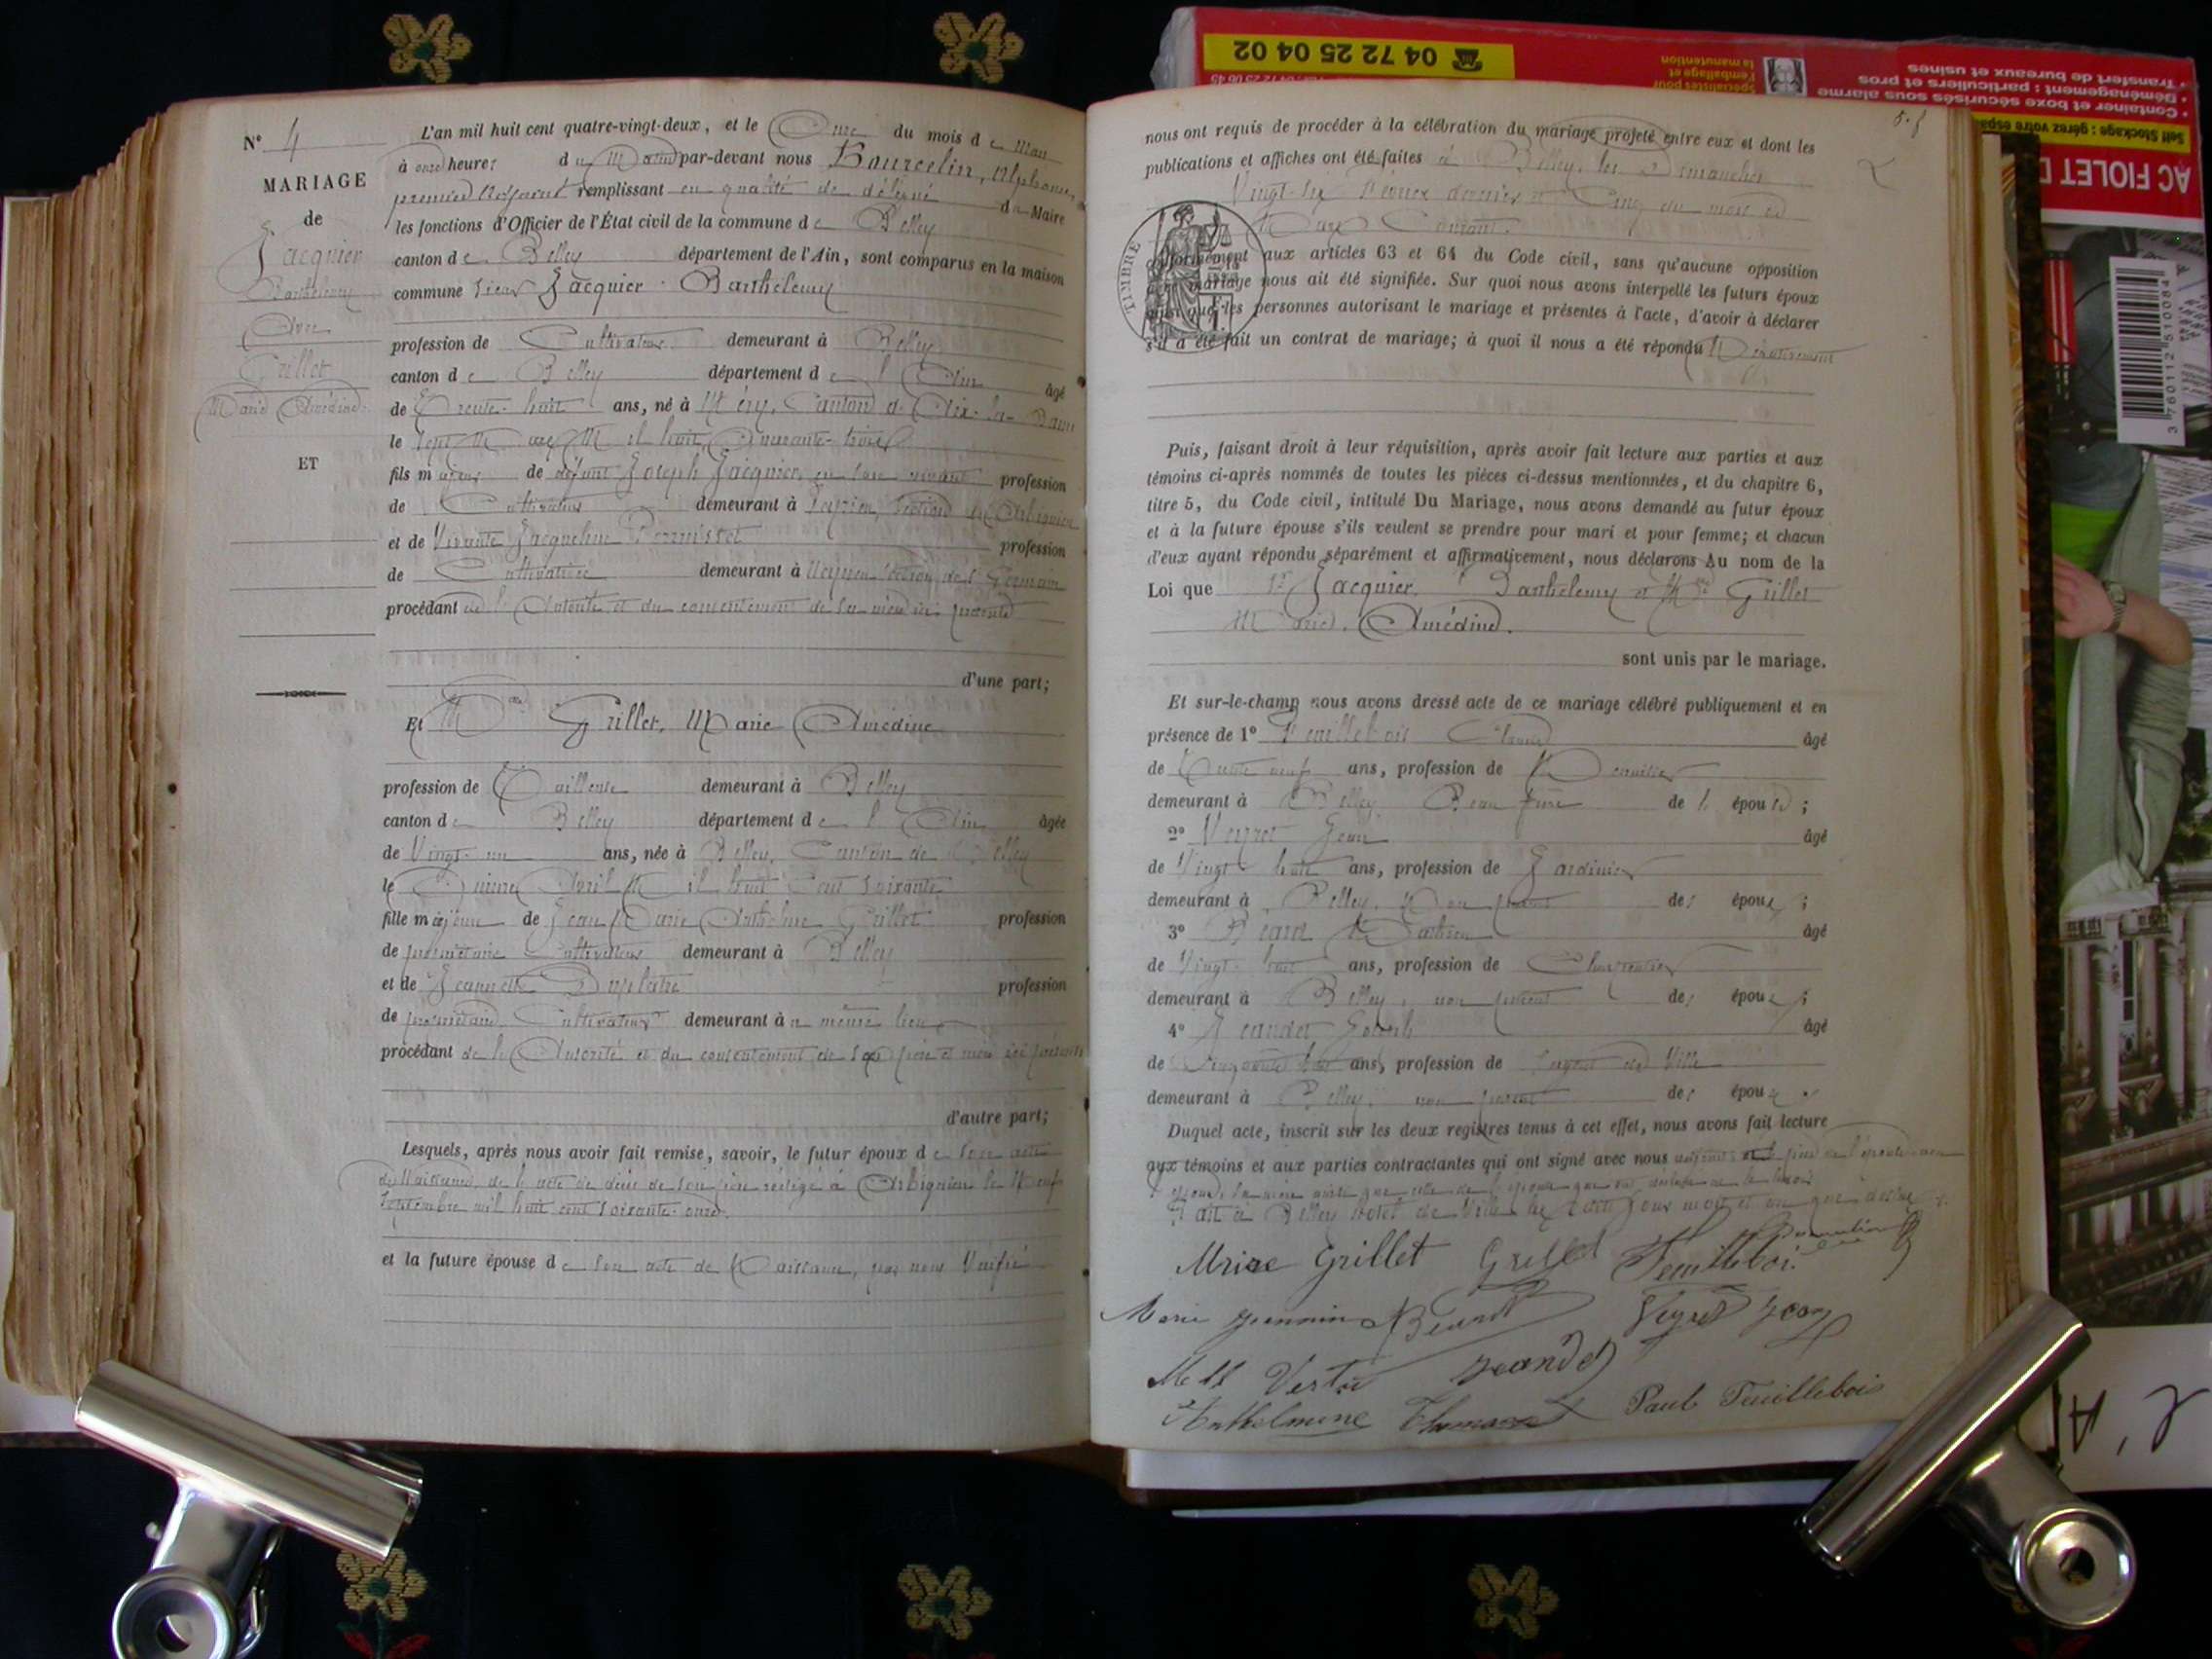 N° 4
MARIAGE
de
Jacquier
Barthélemy
Avec
Grillet
Marie Amédine
ET
L'an mil huit cent quatre-vingt-deux, et le Onze du mois de Mars
à onze heures du Matin par-devant nous Bourcelin, Alphonse,
premier Adjoint remplissant en qualité de délégué du Maire
les fonctions d'Officier de l'État civil de la commune de Belley
canton de Belley département de l'Ain, sont comparus en la maison
commune sieur Jacquier Barthélemy
profession de Cultivateur demeurant à Belley
canton de Belley département de l'Ain âgé
de Trente-huit ans, né à Méry, Canton d'Aix-les-Bains
le Sept Mars Mil huit Quarante-trois
fils majeur de défunt Joseph Jacquier, en son vivant profession
de Cultivateur demeurant à
et de Vivante Jacqueline profession
de Cultivatrice demeurant à
procédant de l'Autorité et du consentement de sa mère ici présente
d'une part;
Et Mlle Grillet, Marie Amédine
profession de Tailleuse demeurant à Belley
canton de Belley département de l'Ain âgée
de Vingt-un ans, née à Belley, Canton de Belley
le Quinze Avril Mil huit Cent soixante
fille majeure de Jean Marie Anthelme Grillet profession
de propriétaire Cultivateur demeurant à Belley
et de Jeannette profession
de propriétaire Cultivateur demeurant à même lieu
procédant de l'Autorité et du consentement de ses père et mère ici présents
d'autre part;
Lesquels, après nous avoir fait remise, savoir, le futur époux de son acte
de Naissance, de l'acte de décès de son père rédigé à Arbignieu le Neuf
Septembre mil huit cent soixante-onze.
et la future épouse de son acte de Naissance, par nous Vérifié
5.f
nous ont requis de procéder à la célébration du mariage projeté entre eux et dont les
publications et affiches ont été faites à Belley, les Dimanches
Vingt-six Février dernier et Cinq du mois de
Mars Courant.
TIMBRE
conformément aux articles 63 et 64 du Code civil, sans qu'aucune opposition
mariage nous ait été signifiée. Sur quoi nous avons interpellé les futurs époux
ainsi que les personnes autorisant le mariage et présentes à l'acte, d'avoir à déclarer
s'il a été fait un contrat de mariage; à quoi il nous a été répondu Négativement
Puis, faisant droit à leur réquisition, après avoir fait lecture aux parties et aux
témoins ci-après nommés de toutes les pièces ci-dessus mentionnées, et du chapitre 6,
titre 5, du Code civil, intitulé Du Mariage, nous avons demandé au futur époux
et à la future épouse s'ils veulent se prendre pour mari et pour femme; et chacun
d'eux ayant répondu séparément et affirmativement, nous déclarons Au nom de la
Loi que Sr Jacquier, Barthélemy et Mlle Grillet
Marie, Amédine.
sont unis par le mariage.
Et sur-le-champ nous avons dressé acte de ce mariage célébré publiquement et en
présence de 1° Feuillebois Claude âgé
de Trente neuf ans, profession de Menuisier
demeurant à Belley Beau frère de l'épouse;
2° Veyret Jean âgé
de Vingt huit ans, profession de Jardinier
demeurant à Belley, Non parent des époux;
3° Béard âgé
de Vingt-huit ans, profession de Charpentier
demeurant à Belley, non parent des époux;
4° Jeandet Joseph âgé
de Cinquante ans, profession de Sergent de Ville
demeurant à Belley, non parent des époux.
Duquel acte, inscrit sur les deux registres tenus à cet effet, nous avons fait lecture
aux témoins et aux parties contractantes qui ont signé avec nous
Fait à Belley Hôtel de Ville les dits Jour mois et an que dessus
Mriae Grillet Grillet Feuillebois
Marie Jeannin Béard Veyret Jean
Jeandet
Anthelmine Paul Feuillebois
04 72 25 04 02
Spécialistes pour
l'emballage et
la manutention
• Container et boxe sécurisés sous alarme
• Déménagement : particuliers et pros
• Transfert de bureaux et usines
Self Stockage : gérez votre espace
AC FIOLET D
3 760112 510084